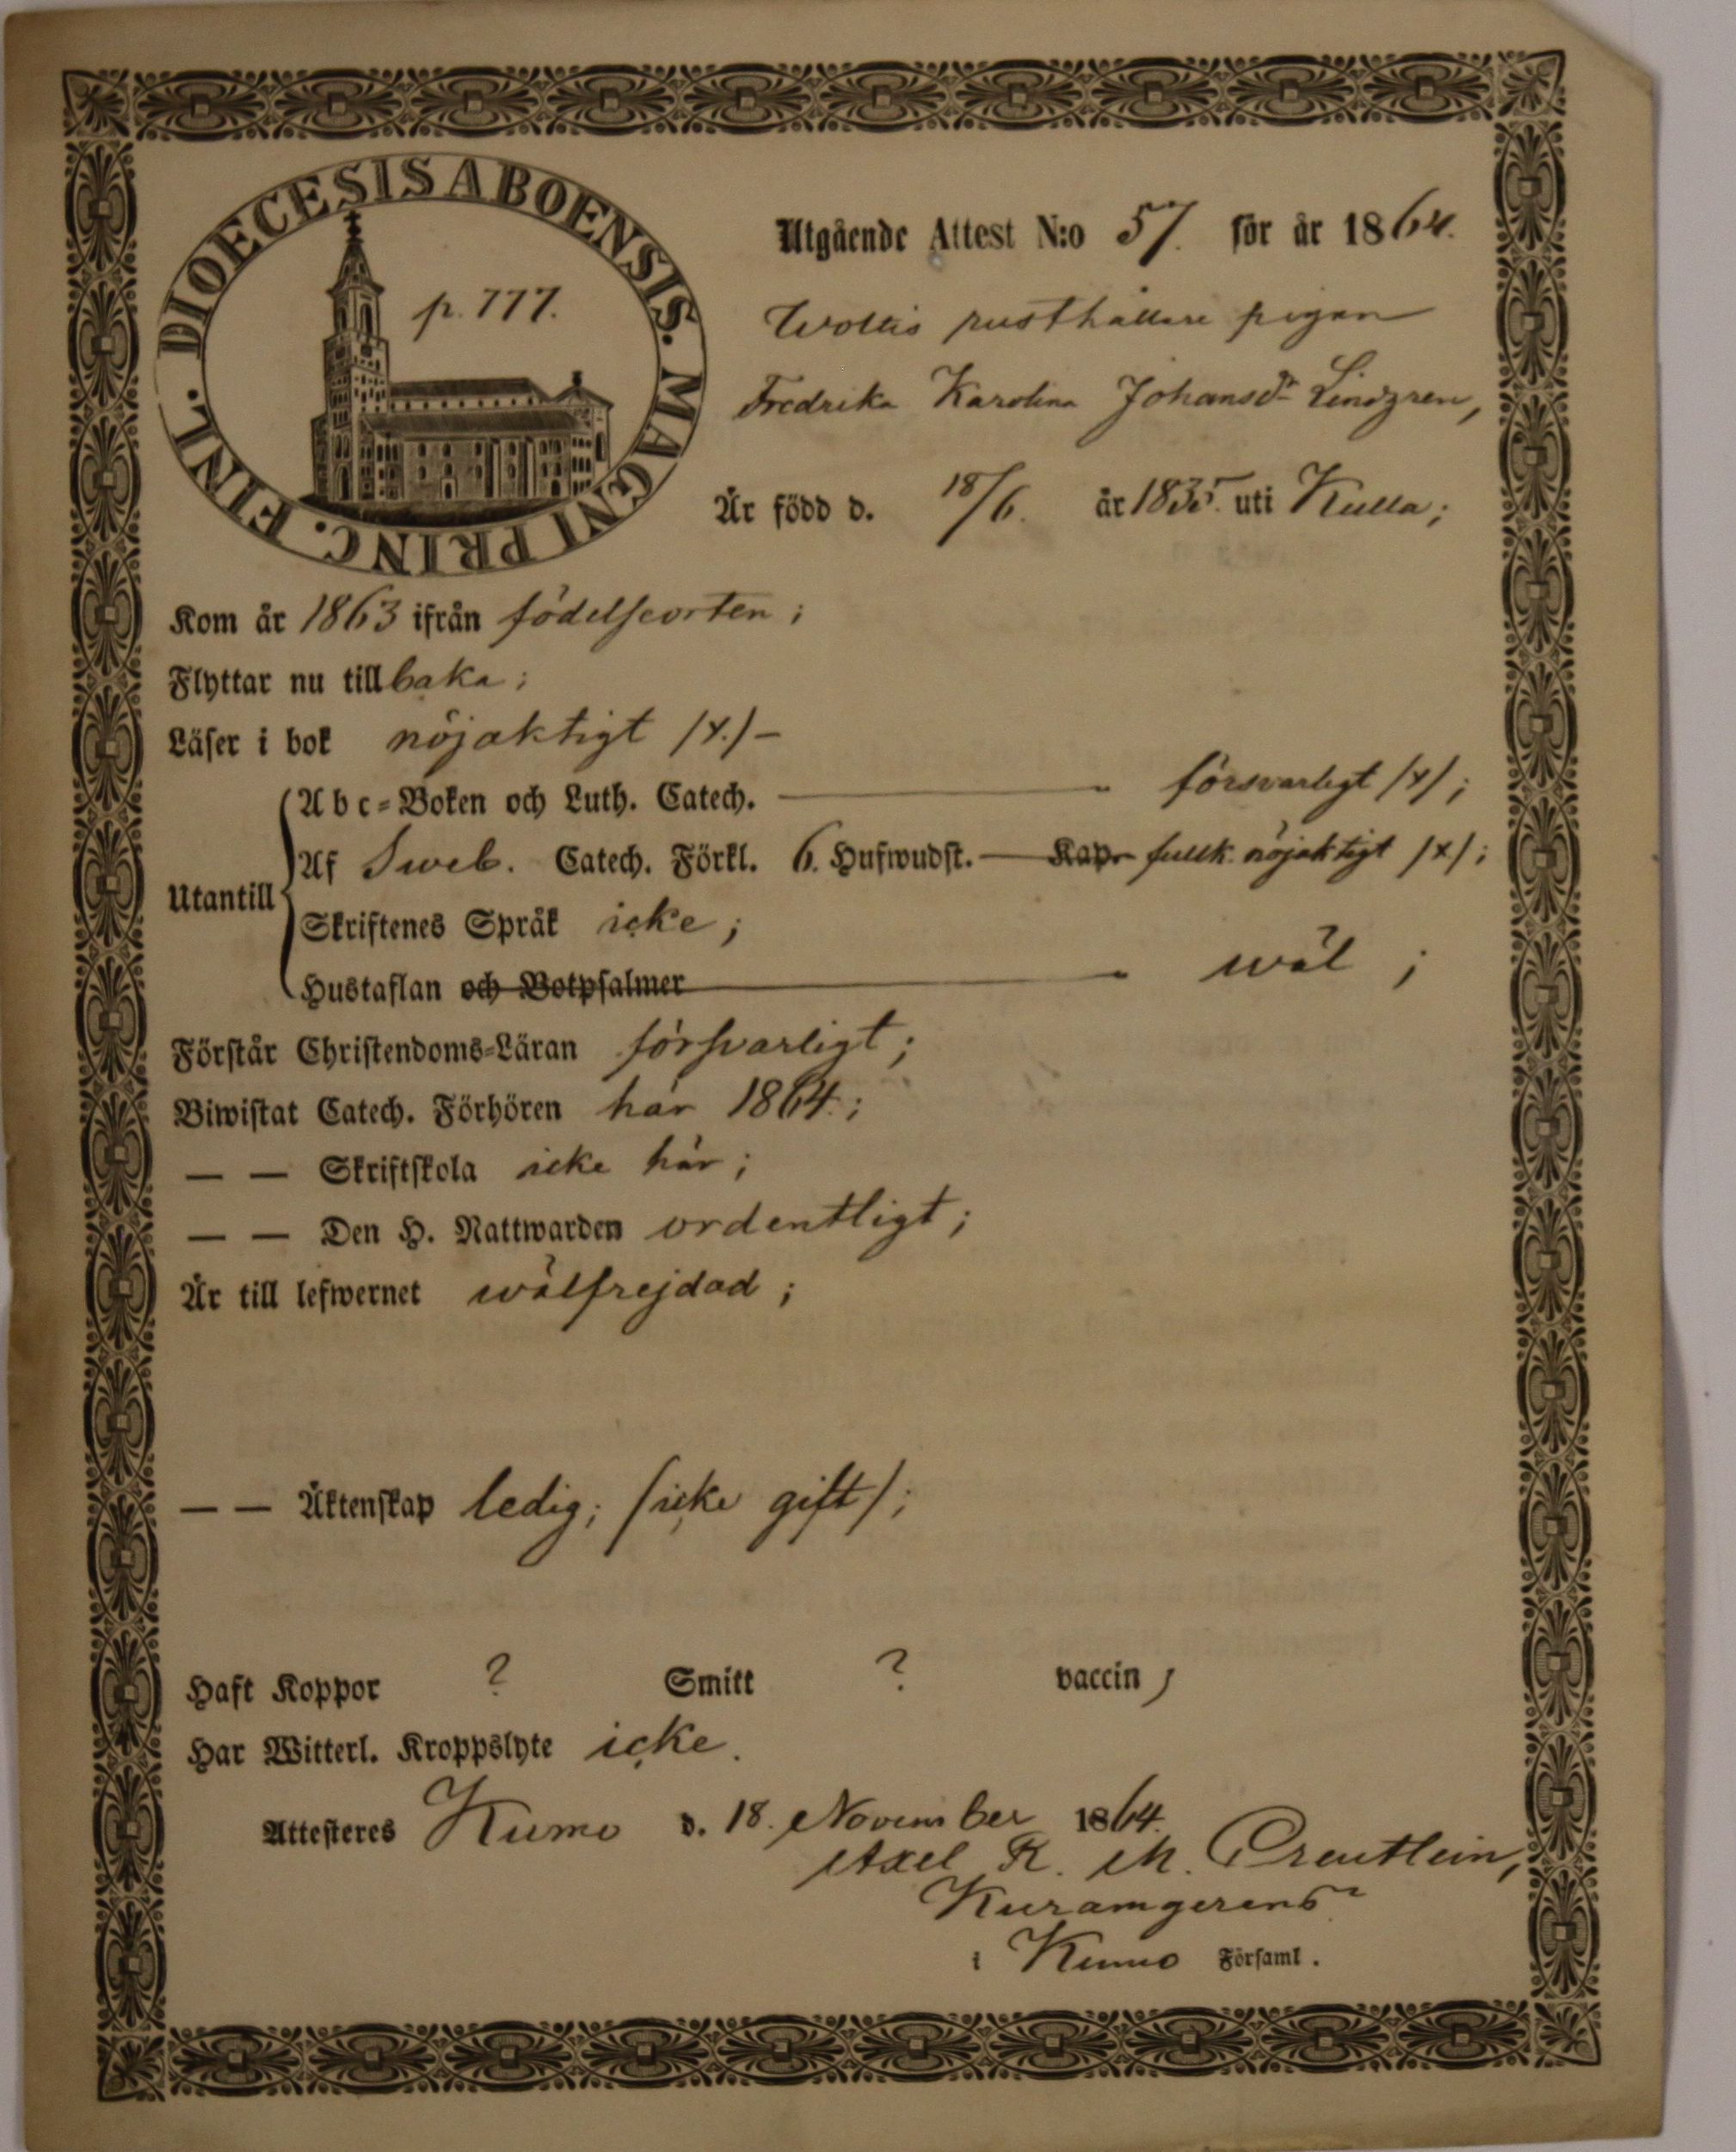 DIOECESIS ABOENSIS. MAGNI PRINC. FINL.
p. 777.
Utgående Attest N:o 57. för år 1864.
Wottis rusthållare pigan
Fredrika Karolina Johansdr Lindgren,
Är född d. 18/6. år 1835. uti Kulla;
Kom år 1863 ifrån födelseorten;
Flyttar nu tillbaka;
Läser i bok nöjaktigt /x./ –
Abc-Boken och Luth. Catech. försvarligt /x/;
Af Sweb. Catech. Förkl. 6. Hufwudst. Kap. fullk. nöjaktigt /x/;
Utantill
Skriftenes Språk icke;
Hustaflan och Botpsalmer wäl;
Förstår Christendoms-Läran försvarligt;
Biwistat Catech. Förhören här 1864.;
— — Skriftskola icke här;
— — Den H. Nattwarden ordentligt;
Är till lefwernet wälfrejdad;
— — Äktenskap ledig; /icke gift/;
Haft Koppor ? Smitt ? vaccin;
Har Witterl. Kroppslyte icke.
Attesteres Kumo d. 18. November 1864.
Axel R. M. Creutlein,
Kuramgerens
i Kumo Församl.